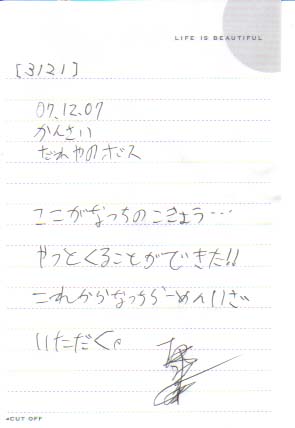 LIFE IS BEAUTIFUL
[3121]
07.12.07
かんさい
だれやのボス
ここがなっちのこきょう…
やっとくることができた!!
これからなっちらーめんいざ
いただく。
CUT OFF